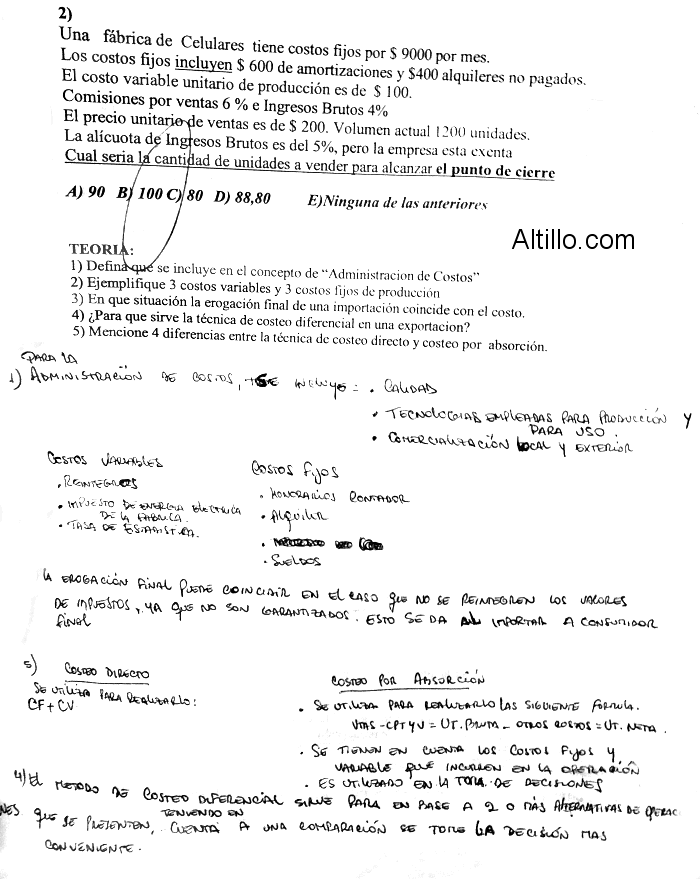 2)
Una fábrica de Celulares tiene costos fijos por $ 9000 por mes.
Los costos fijos incluyen $ 600 de amortizaciones y $400 alquileres no pagados.
El costo variable unitario de producción es de $ 100.
Comisiones por ventas 6 % e Ingresos Brutos 4%
El precio unitario de ventas es de $ 200. Volumen actual 1200 unidades.
La alícuota de Ingresos Brutos es del 5%, pero la empresa esta exenta
Cual seria la cantidad de unidades a vender para alcanzar el punto de cierre
A) 90 B) 100 C) 80 D) 88,80 E)Ninguna de las anteriores
Altillo.com
TEORIA:
1) Defina qué se incluye en el concepto de "Administracion de Costos"
2) Ejemplifique 3 costos variables y 3 costos fijos de producción
3) En que situación la erogación final de una importación coincide con el costo.
4) ¿Para que sirve la técnica de costeo diferencial en una exportacion?
5) Mencione 4 diferencias entre la técnica de costeo directo y costeo por absorción.
PARA LA
1) ADMINISTRACIÓN DE COSTOS, SE INCLUYE = • CALIDAD
• TECNOLOGIAS EMPLEADAS PARA PRODUCCIÓN Y
PARA USO.
• COMERCIALIZACIÓN LOCAL Y EXTERIOR
COSTOS VARIABLES
• REINTEGROS
• IMPUESTO DE ENERGIA ELECTRICA
DE LA FABRICA.
• TASA DE ESTADISTICA.
COSTOS FIJOS
• HONORARIOS CONTADOR
• Alquiler
• SUELDOS
LA EROGACIÓN FINAL PUEDE COINCIDIR EN EL CASO QUE NO SE REINTEGREN LOS VALORES
DE IMPUESTOS, YA QUE NO SON GARANTIZADOS. ESTO SE DA AL IMPORTAR A CONSUMIDOR
FINAL
5) COSTEO DIRECTO
SE UTILIZA PARA REALIZARLO:
CF + CV
COSTEO POR ABSORCIÓN
• SE UTILIZA PARA REALIZARLO LAS SIGUIENTE FORMULA.
VTAS - CPTYV = UT. BRUTA - OTROS COSTOS = UT. NETA.
• SE TIENEN EN CUENTA LOS COSTOS FIJOS Y
VARIABLE QUE INCURREN EN LA OPERACIÓN
• ES UTILIZADO EN LA TOMA DE DECISIONES
4) El METODO DE COSTEO DIFERENCIAL SIRVE PARA EN BASE A 2 O MÁS ALTERNATIVAS DE OPERAC
TENIENDO EN
NES QUE SE PRESENTEN, CUENTA A UNA COMPARACIÓN SE TOME LA DECISIÓN MAS
CONVENIENTE.